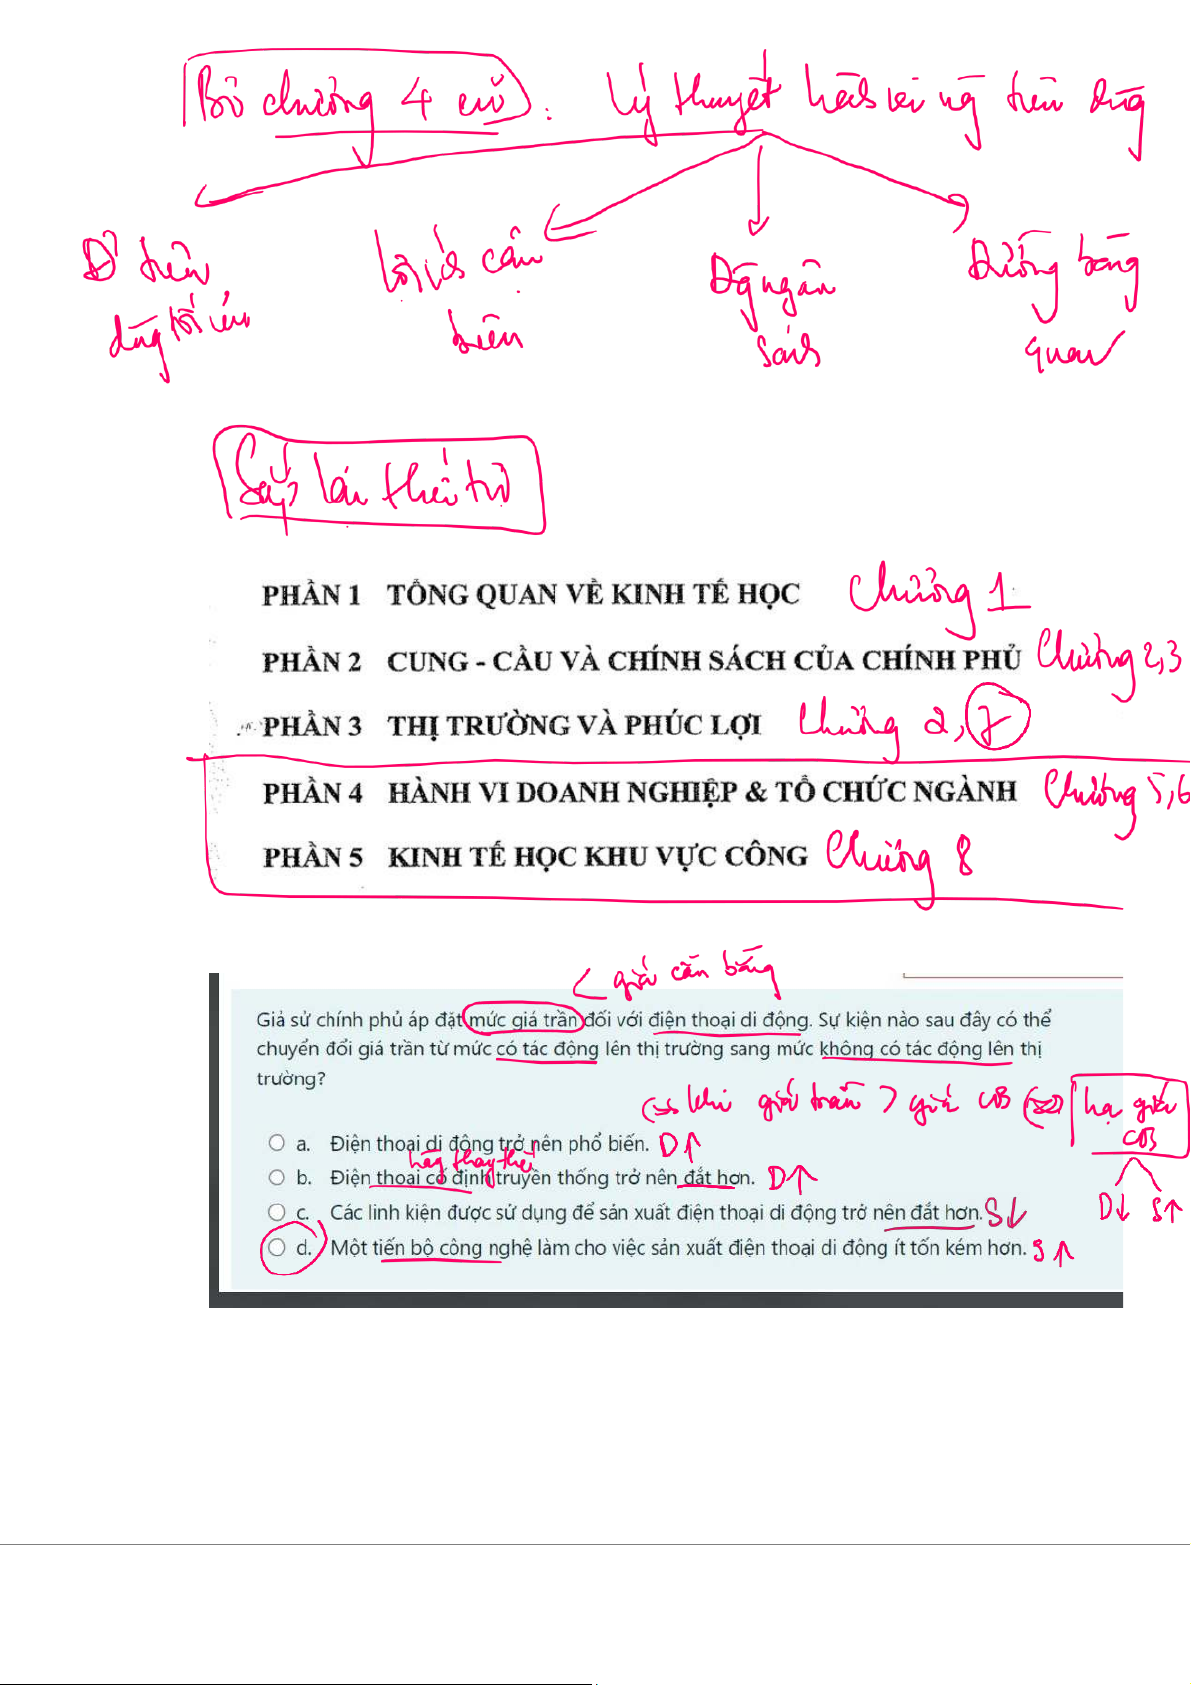 Bỏ chương 4 cũ: Lý thuyết hành vi ng tiêu dùng
Đ' tiêu dùng tối ưu
Lợi ích cận biên
Đg ngân sách
Đường bàng quan
Sắp lại thứ tự
PHẦN 1 TỔNG QUAN VỀ KINH TẾ HỌC Chương 1
PHẦN 2 CUNG - CẦU VÀ CHÍNH SÁCH CỦA CHÍNH PHỦ Chương 2,3
PHẦN 3 THỊ TRƯỜNG VÀ PHÚC LỢI Chương 2, 7
PHẦN 4 HÀNH VI DOANH NGHIỆP & TỔ CHỨC NGÀNH Chương 5,6
PHẦN 5 KINH TẾ HỌC KHU VỰC CÔNG Chương 8
< giá cân bằng
Giả sử chính phủ áp đặt mức giá trần đối với điện thoại di động. Sự kiện nào sau đây có thể
chuyển đổi giá trần từ mức có tác động lên thị trường sang mức không có tác động lên thị
trường?
khi giá trần > giá CB hạ giá CB
D↓ S↑
a. Điện thoại di động trở nên phổ biến. D↑
hàng thay thế
b. Điện thoại cố định truyền thống trở nên đắt hơn. D↑
c. Các linh kiện được sử dụng để sản xuất điện thoại di động trở nên đắt hơn. S↓
d. Một tiến bộ công nghệ làm cho việc sản xuất điện thoại di động ít tốn kém hơn. S↑